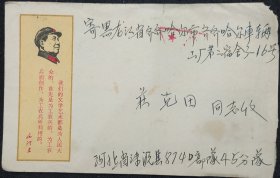 寄黑龙江省齐齐哈尔市齐齐哈尔車辆
工厂第二宿舍3-16号
我们的文学艺术都是为人民大
众的，首先是为工农兵的，为工农
兵而创作，为工农兵所利用的。
毛泽东
克田 同志收
河北省 县8740部隊45分隊